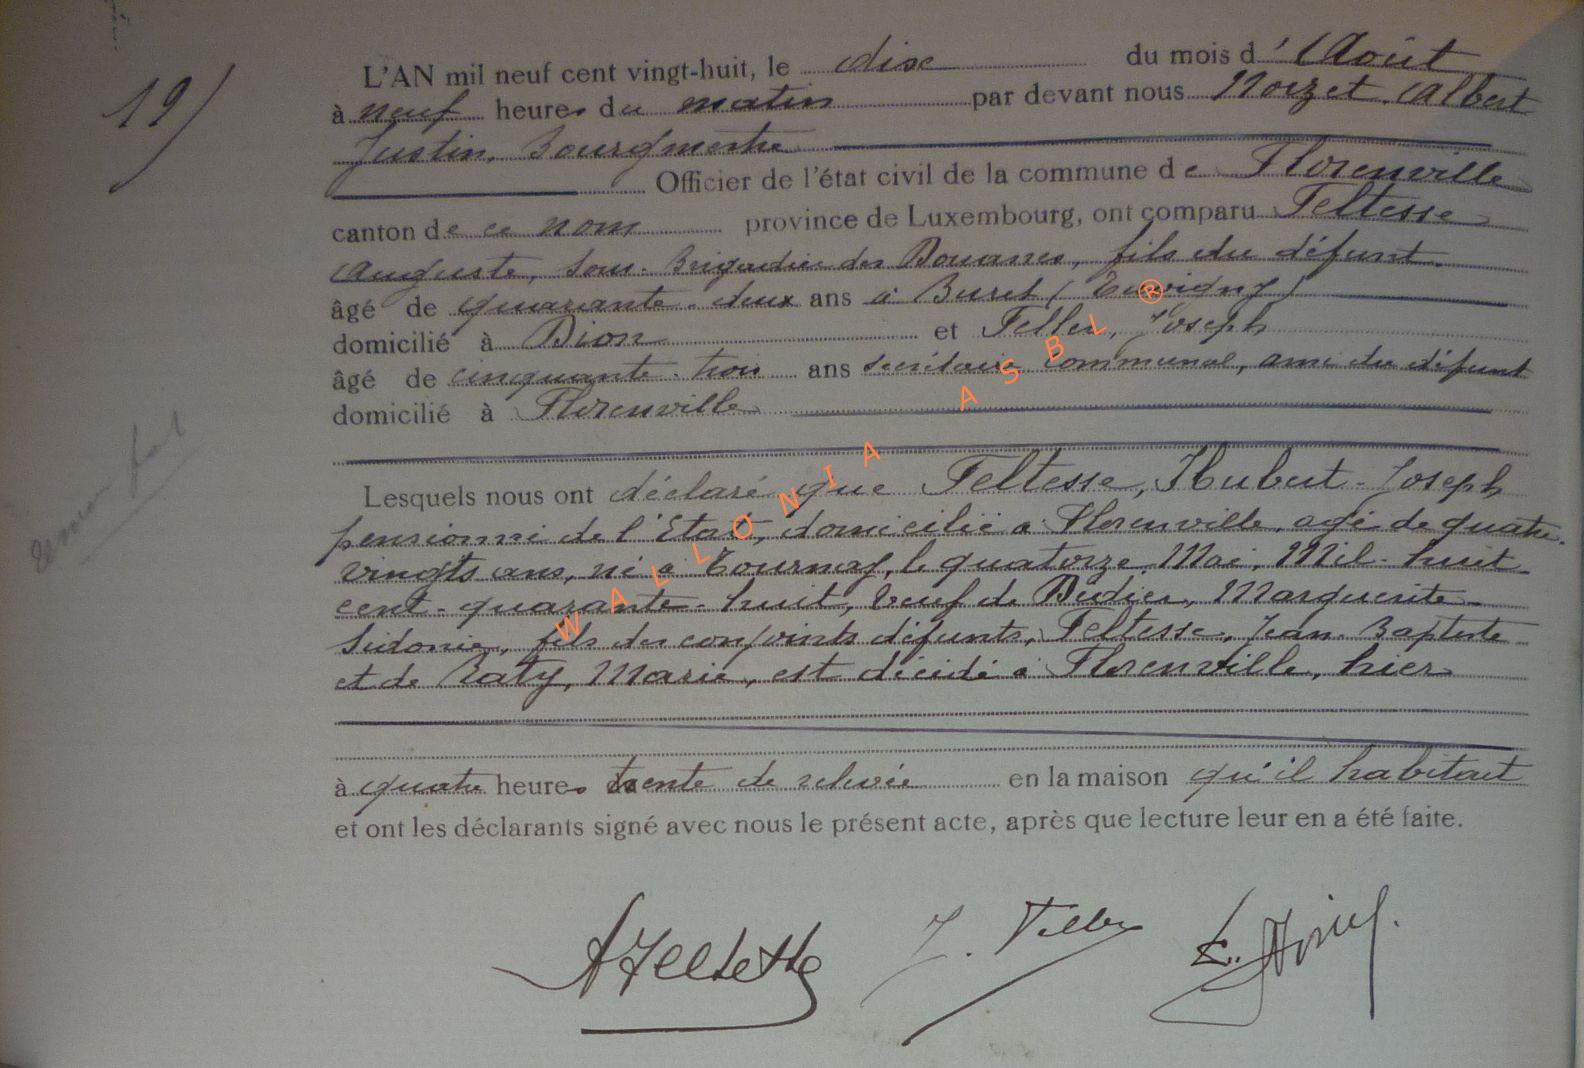 19)
L'AN mil neuf cent vingt-huit, le dix du mois d'Août
à neuf heures du matin par devant nous Noizet Albert
Justin, Bourgmestre
Officier de l'état civil de la commune de Florenville
canton de ce nom province de Luxembourg, ont comparu Feltesse
Auguste, Sous-Brigadier des Douanes, fils du défunt
âgé de quarante-deux ans à Buret (Tavigny)
domicilié à Dion et Feller, Joseph
âgé de cinquante-trois ans secrétaire communal, ami du défunt
domicilié à Florenville
Lesquels nous ont déclaré que Feltesse, Hubert-Joseph
pensionné de l'Etat, domicilié à Florenville, agé de quatre-
vingts ans, né à Tournay, le quatorze Mai, Mil-huit-
cent-quarante-huit, veuf de Budier, Marguerite-
Sidonie, fils des conjoints défunts, Feltesse, Jean-Baptiste
et de Baty, Marie, est décédé à Florenville, hier
à quatre heures trente de relevée en la maison qu'il habitait
et ont les déclarants signé avec nous le présent acte, après que lecture leur en a été faite.
AFeltesse J. Feller
WALLONIA ASBL ®